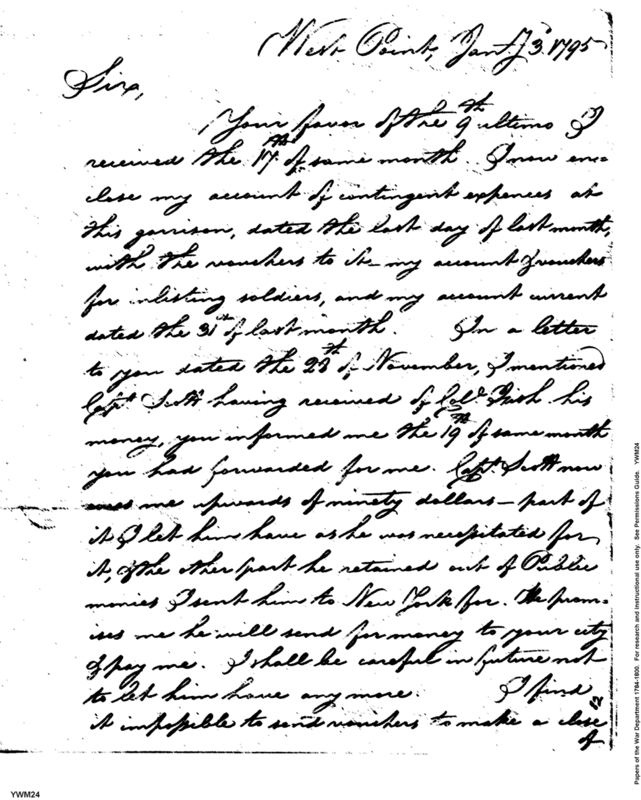 West Point, Jany 3d. 1795
Sir,
Your favor of the 9th ultimo I
received the 17th of same month. I now en-
close my account of contingent expences at
this garrison, dated the last day of last month,
with the vouchers to it – my account & vouchers
for inlisting soldiers, and my account current
dated the 31st of last month. In a letter
to you dated the 28th of November, I mentioned
Capt. Scott having received of Colo. Fish his
money, you informed me the 19th of same month
you had forwarded for me. Capt. Scott now
owes me upwards of ninety dollars – part of
it I let him have as he was necessitated for
it, & the other part he retained out of Public
monies I sent him to New York for. He prom-
ises me he will send for money to your city
& pay me. I shall be careful in future not
to let him have any more. I find
it impossible to send vouchers to make a close
of
YWM24
Papers of the War Department 1784-1800. For research and instructional use only. See Permissions Guide. YWM24